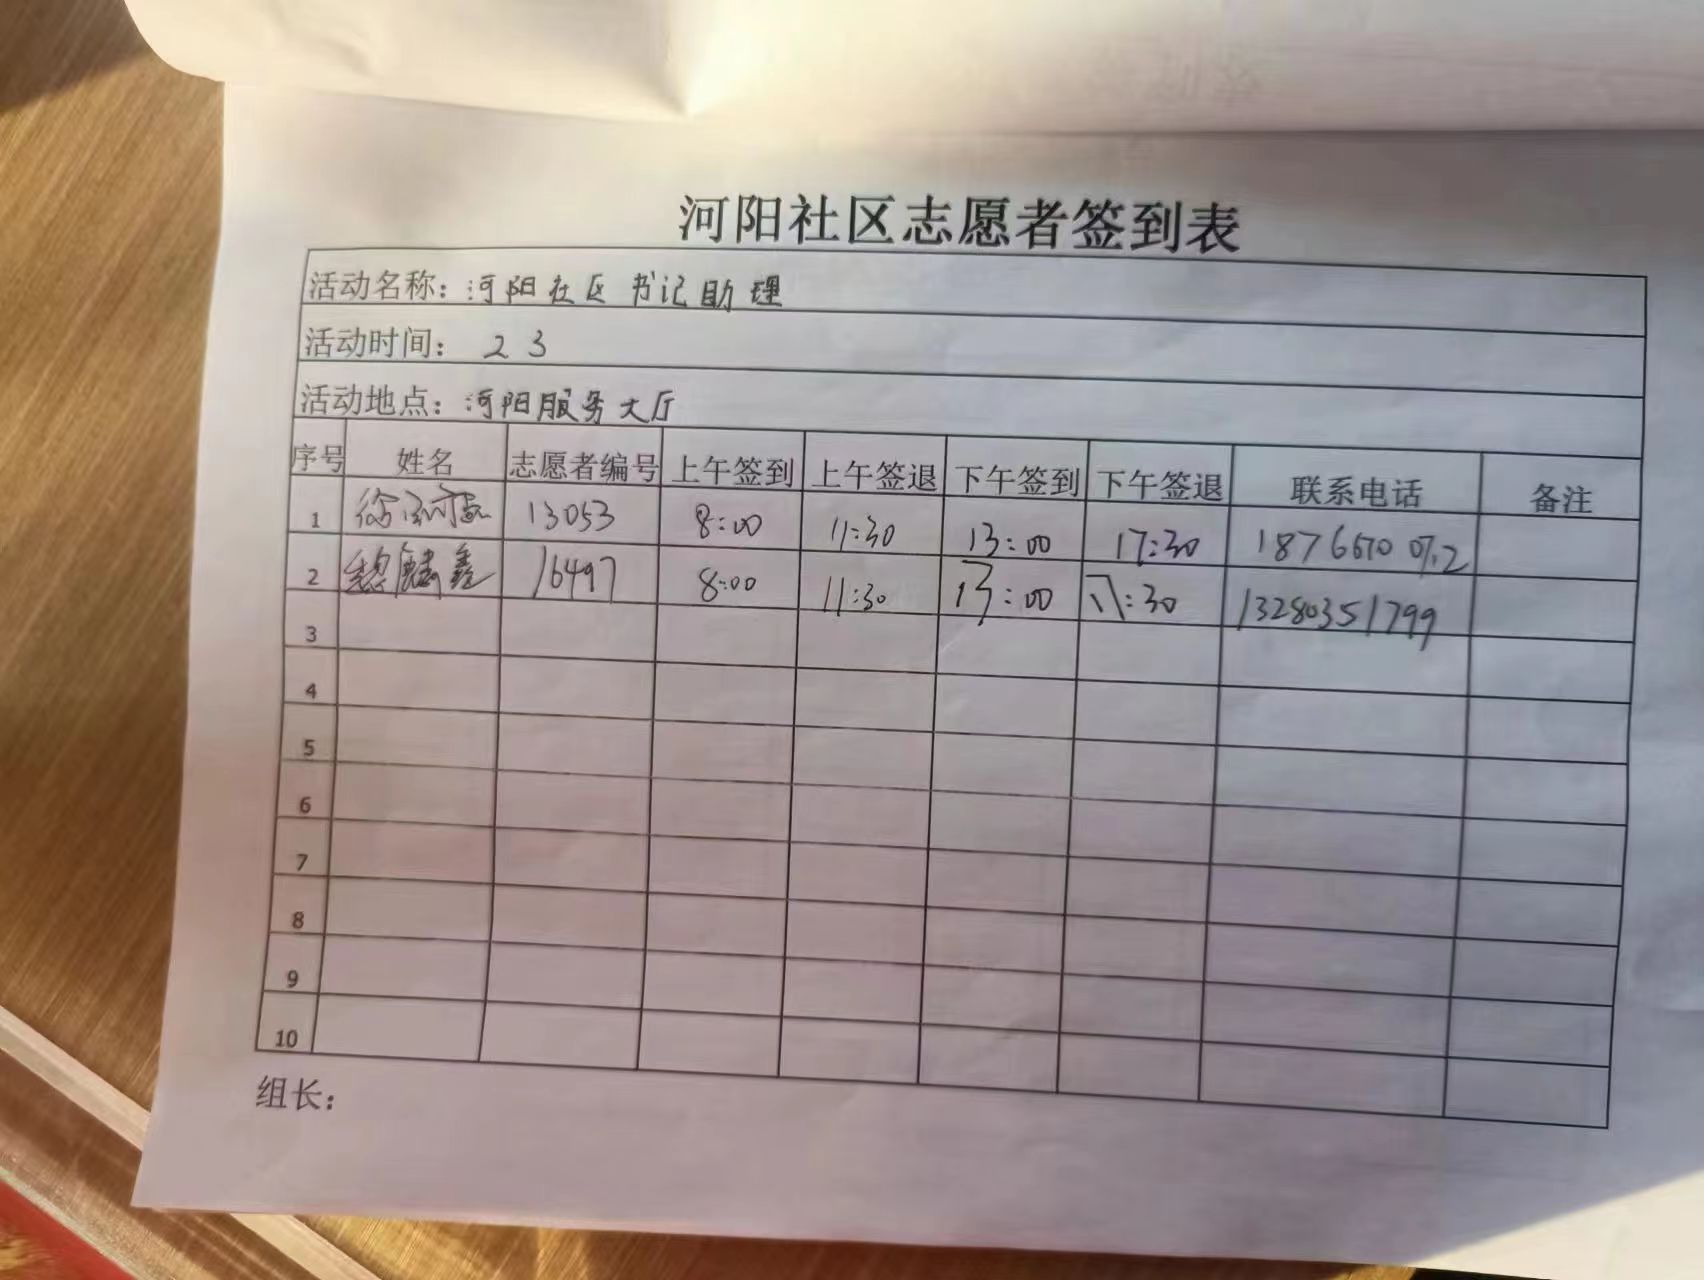 河阳社区志愿者签到表
活动名称：河阳社区书记助理
活动时间： 2 3
活动地点：河阳服务大厅
序号 姓名 志愿者编号 上午签到 上午签退 下午签到 下午签退 联系电话 备注
1 徐 13053 8:00 11:30 13:00 17:30
2 鑫 16497 8:00 11:30 13:00 17:30 13280351799
3
4
5
6
7
8
9
10
组长：